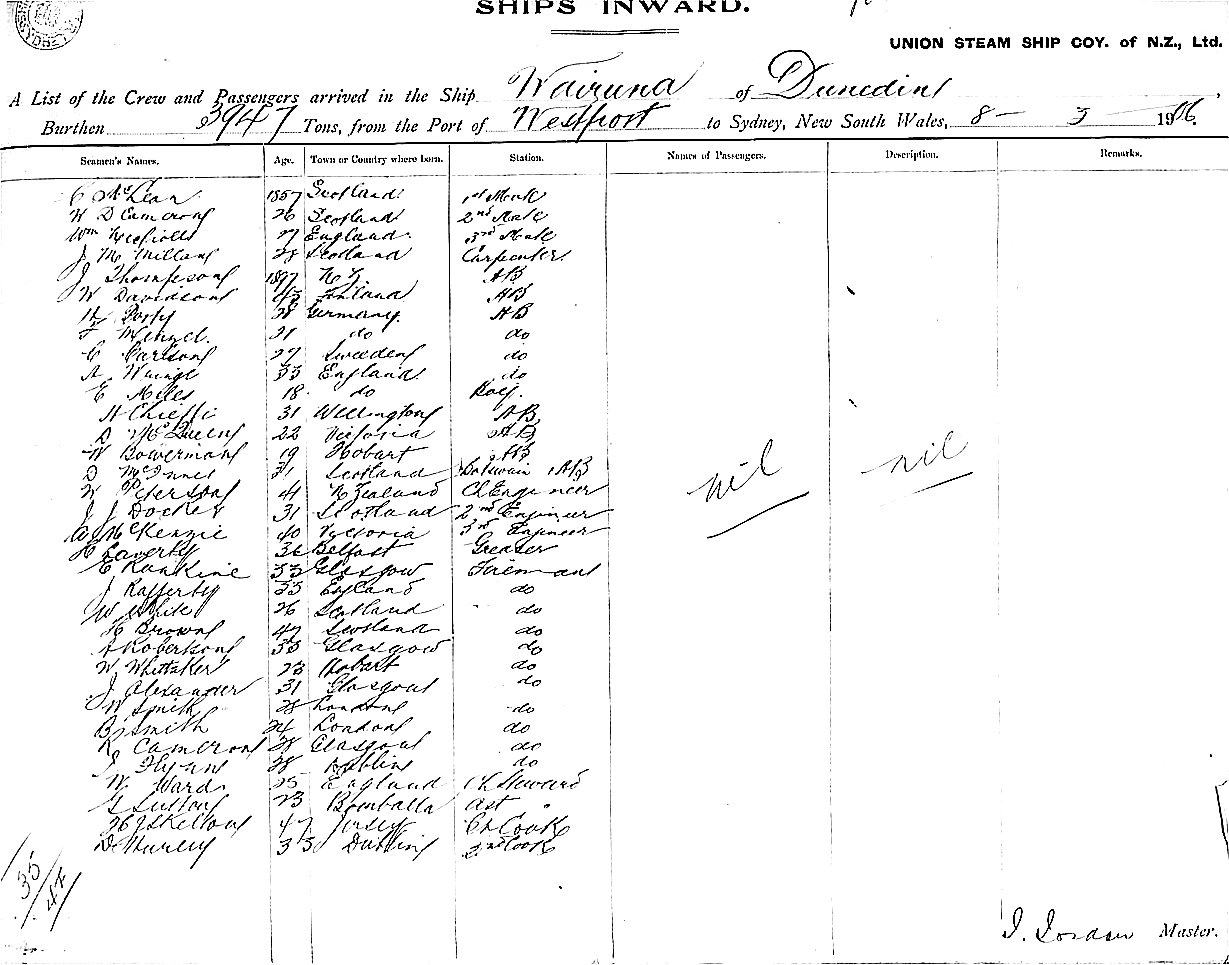 SHIPS INWARD.
UNION STEAM SHIP COY. of N.Z., Ltd.
A List of the Crew and Passengers arrived in the Ship Wairuna of Dunedin,
Burthen 3947 Tons, from the Port of Westport to Sydney, New South Wales, 8 - 3 1906.
Seamen's Names. Age. Town or Country where born. Station. Names of Passengers. Description. Remarks.
C McLean 1857 Scotland 1st Mate
W D Cameron 26 Scotland 2nd Mate
Wm Nicholls 27 England 3rd Mate
J McMillan 28 Scotland Carpenter
J Thompson 1897 N Z. AB
W Davidson 43 Finland AB
38 Germany. AB
F Menzel. 21 do do
C Carlson 27 Sweeden do
A 33 England do
E Miles 18 do Boy.
A Chieffi 31 Wellington AB
D McQueen 22 Victoria AB
W Bowerman 19 Hobart AB
D McInnes 31 Scotland Boatswain & AB
W Peterson 41 N Zealand Ch Engineer
J J Docker 31 Scotland 2nd Engineer
A McKenzie 40 Victoria 3rd Engineer
H Laverty 36 Belfast Greaser
E Rankine 33 Glasgow Fireman
J Rafferty 33 England do
W White 26 Scotland do
H Brown 47 Scotland do
A Robertson 33 Glasgow do
W Whittaker 23 Hobart do
J Alexander 31 Glasgow do
W Smith 28 London do
B Smith 24 London do
R Cameron 28 Glasgow do
J Flynn 28 Dublin do
W Ward 25 England Ch Steward
G Sutton 23 Bomballa Ast "
Skelton 47 Jersey Ch Cook
D Hurley 33 Dublin 2nd Cook
nil nil
35/47
J. Jordan Master.